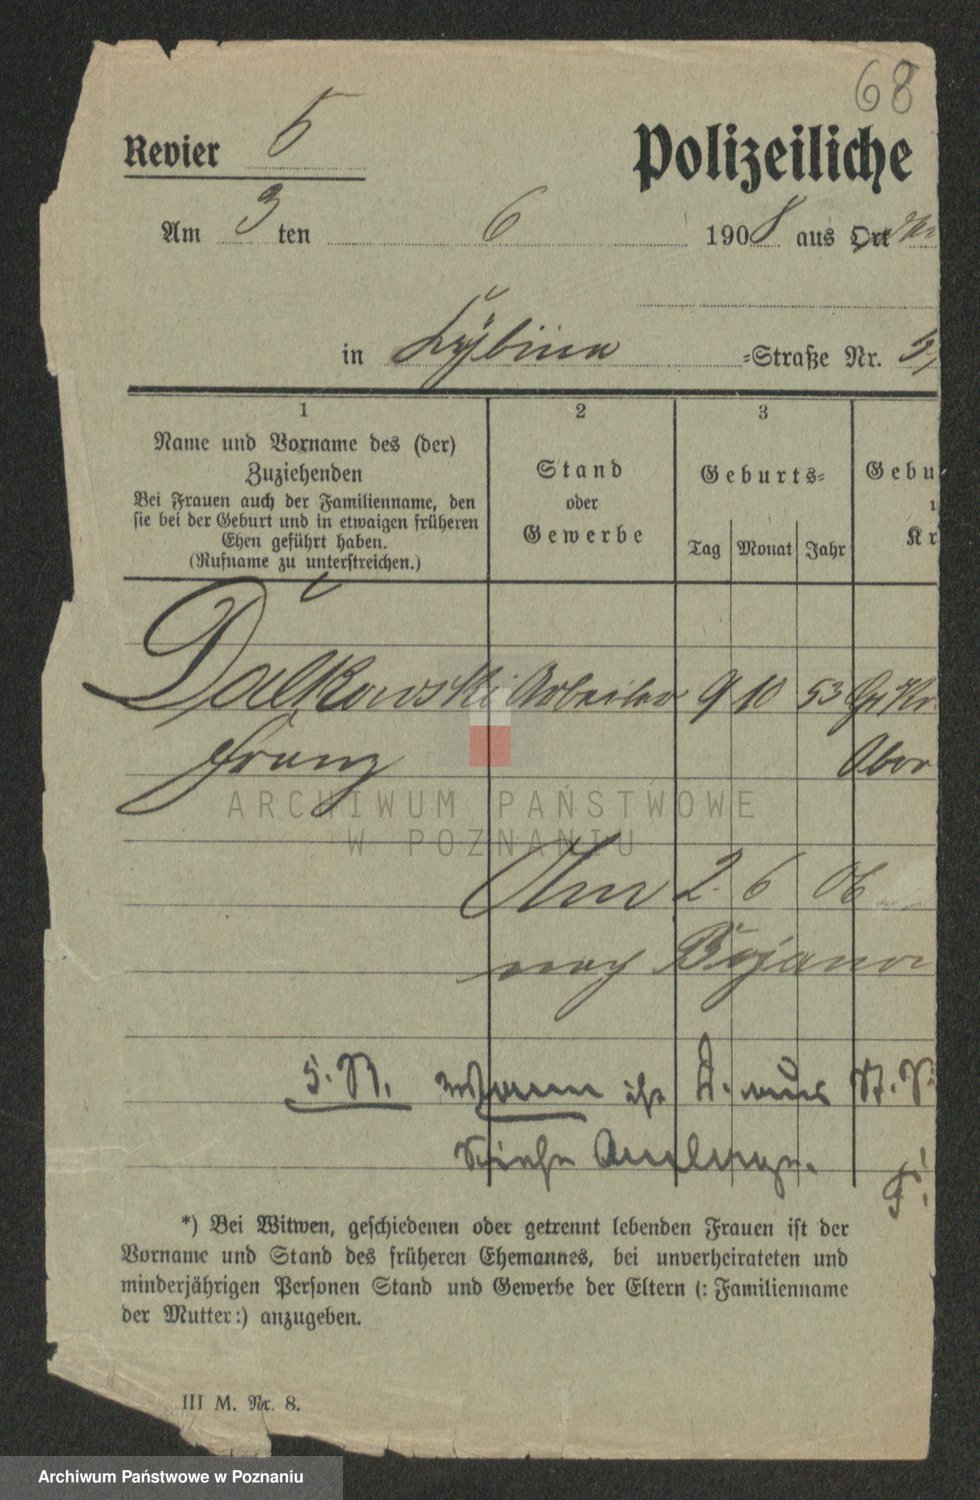 68
Revier 5
Polizeiliche
Am 3 ten 6 1908 aus Ort
in Cybina =Straße Nr. 5
1
Name und Vorname des (der)
Zuziehenden
Bei Frauen auch der Familienname, den
sie bei der Geburt und in etwaigen früheren
Ehen geführt haben.
(Rufname zu unterstreichen.)
2
Stand
oder
Gewerbe
3
Geburts=
Tag Monat Jahr
Gebu
Kr
Dalkowski Arbeiter 9 10 53
Franz Ober
ARCHIWUM PAŃSTWOWE
W POZNANIU
Am 2. 6 06
nach Bojano
5. R. wann ist D. aus
Siehe Anlage.
*) Bei Witwen, geschiedenen oder getrennt lebenden Frauen ist der
Vorname und Stand des früheren Ehemannes, bei unverheirateten und
minderjährigen Personen Stand und Gewerbe der Eltern (: Familienname
der Mutter:) anzugeben.
III M. Nr. 8.
Archiwum Państwowe w Poznaniu